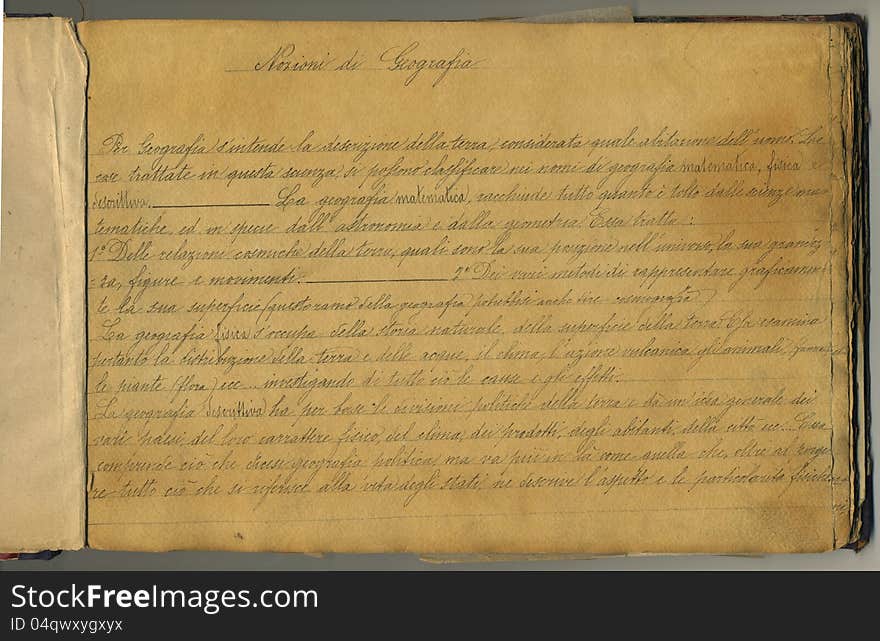 Nozioni di Geografia
Per Geografia s'intende la descrizione della terra, considerata quale abitazione dell'uomo. Le
cose trattate in questa scienza, si possono classificare nei nomi di geografia matematica, fisica e
descrittiva. La geografia matematica, racchiude tutto quanto è tolto dalle scienze ma
tematiche, ed in specie dall'astronomia e dalla geometria. Essa tratta:
1º Delle relazioni cosmiche della terra, quali sono la sua posizione nell'universo, la sua grandez
=za, figure e movimenti. 2º Dei vari metodi di rappresentare graficamen
te la sua superficie (questo ramo della geografia potrebbesi anche dire cosmografia)
La geografia fisica s'occupa della storia naturale, della superficie della terra. Essa esamina
pertanto la distribuzione della terra e delle acque, il clima, l'azione vulcanica gli animali,
le piante (flora) ecc. investigando di tutto ciò le cause e gli effetti.
La geografia descrittiva ha per base le divisioni politiche della terra e dà un'idea generale dei
vari paesi, del loro carrattere fisico, del clima, dei prodotti, degli abitanti, delle città ecc. Essa
comprende ciò che dicesi geografia politica, ma va più in là come quella che, oltre ad
re tutto ciò che si riferisce alla vita degli stati, ne descrive l'aspetto e le particolarità fisiche
StockFreeImages.com
ID 04qwxygxyx